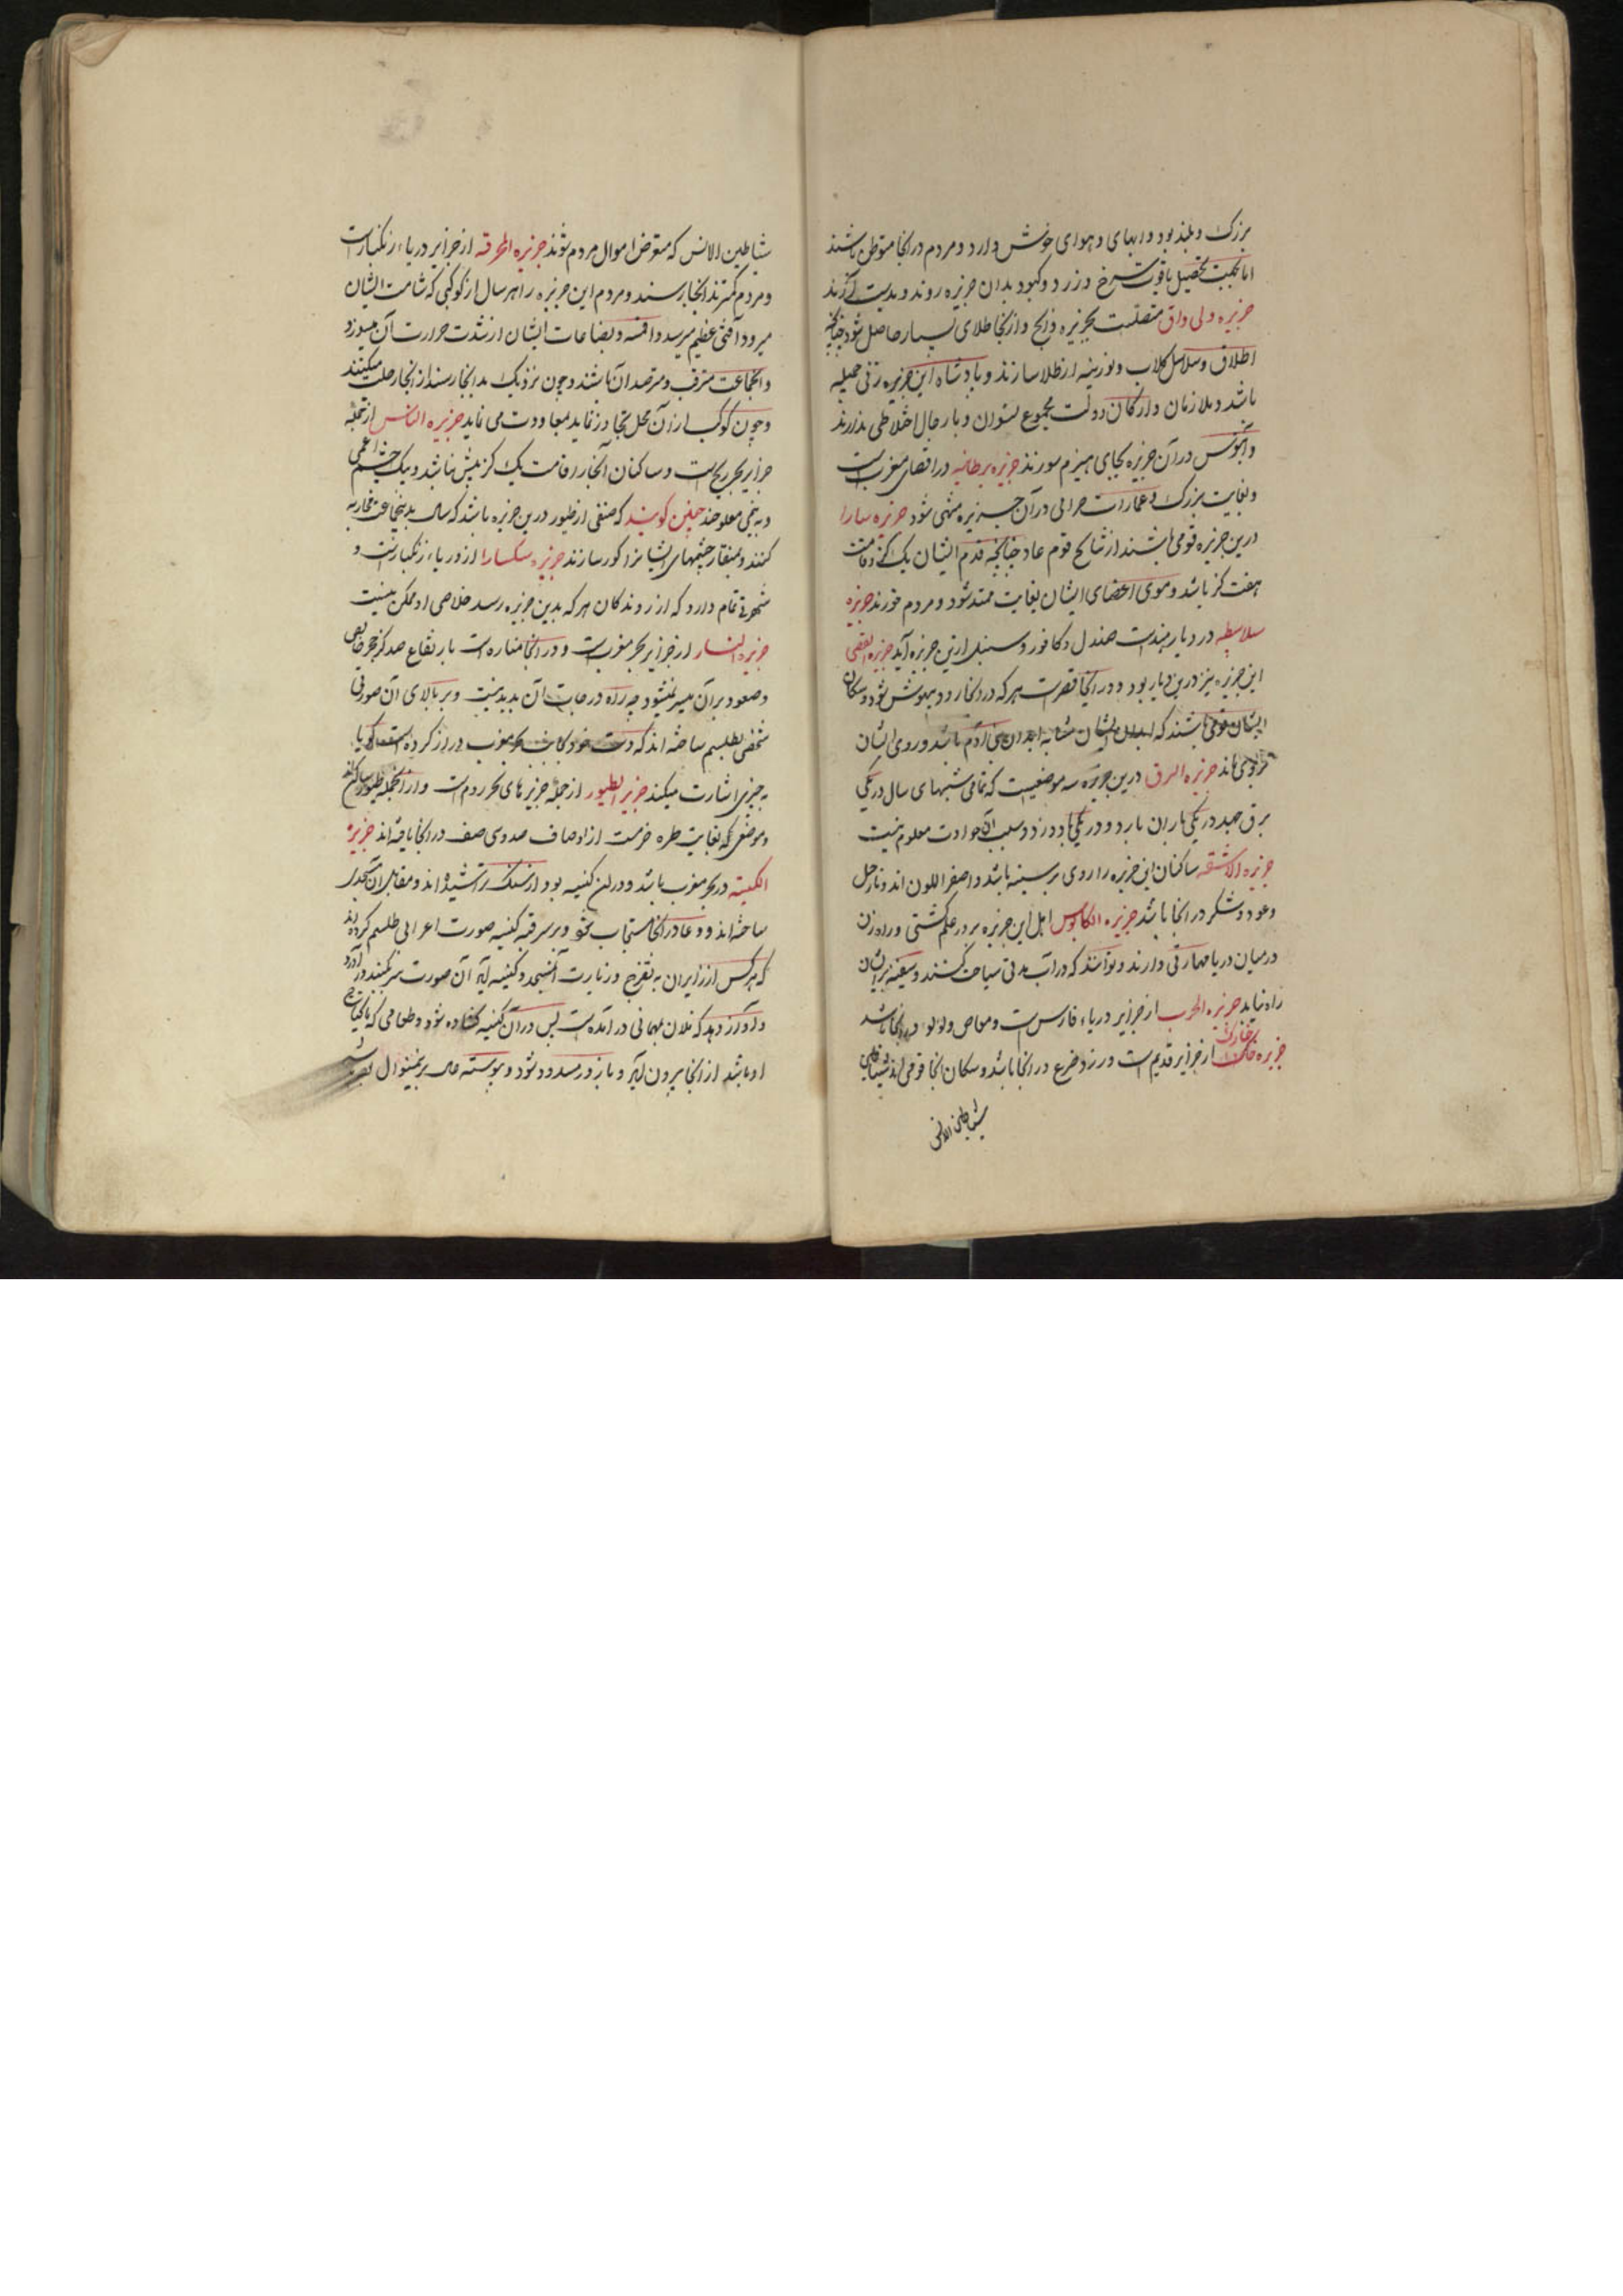 بزرک و بلند بود و ابهای و هوای خوش دارد و مردم در انجا متوطن باشند
اما بجهت تحصیل یاقوت سرخ و زرد و کبود بدان جزیره روند و بدست آرند
جزیره ولی واق متصلست بجزیره زابج و از انجا طلای بسیار حاصل شود چنانچه
اطلاق و سلاسل کلاب و بوزینه از طلا سازند و پادشاه این جزیره زنی جمیله
باشد و ملازمان و ارکان دولت مجموع نسوان و با رجال اختلاطی ندارند
و آبنوس در آن جزیره بجای هیزم سوزند جزیره برطانیه در اقصای مغربست
و بغایت بزرک و عمارات در آن جزیره منتهی شود جزیره سارا
درین جزیره قومی باشند از نتایج قوم عاد چنانچه قدم ایشان یک کز و قامت
هفت کز باشد و موی اعضای ایشان بغایت ممتد شود و مردم خورند جزیره
سلاسطه در دیار هندست صندل و کافور و سنبل ازین جزیره آید جزیره القصر
این جزیره نیز درین دیار بود و در انجا قصرست هر که در انجا رود بیهوش شود و سکان
ایشان قومی باشند که ابدان ایشان مشابه ابدان بنی آدم باشد و روی ایشان
جزیره البرق درین جزیره سه موضعیست که تمامی شبهای سال در یکی
برق جهد در یکی باران بارد و در یکی باد وزد و سبب آن حوادث معلوم نیست
جزیره ساکنان این جزیره را روی بر سینه باشد و اصفر اللون اند و نارجیل
و عود و شکر در انجا باشد جزیره الکابوس اهل این جزیره بر در علم کشتی و راه زن
در میان دریا مهارتی دارند و توانند که در آب مدتی سیاحت کنند و سفینه بر ایشان
راه نیابد جزیره الحرب از جزایر دریاء فارس ست و مغاص ولولو در انجا باشد
جزیره خارک از جزایر قدیم ست و رز و ضرع در انجا باشد و سکان انجا قومی اند
شیاطین الانس
شیاطین الانس که متعرض اموال مردم شوند جزیره المحرقه از جزایر دریاء زنکبارست
و مردم کمتر بدانجا رسند و مردم این جزیره را هر سال از کوکبی که شامت ایشان
میرود آفتی عظیم میرسد و اقمشه و بضاعات ایشان از شدت حرارت آن میسوزد
و انجماعت مترقب و مترصد آن باشند و چون نزدیک بدانجا رسند از انجا رحلت میکنند
و چون کوکب از آن محل تجاوز نماید معاودت می نماید جزیره الناس از جمله
جزایر بحر زنج ست و ساکنان آنجا را قامت یک کز بیش نباشد و یک چشم اعمی
کویند که صنفی از طیور درین جزیره باشد که سال بدینجا محاربه
کنند و بمنقار چشمهای ایشانرا کور سازند جزیره سکسارا از دریاء زنکبارست و
شهرتی تمام دارد که از روندکان هر که بدین جزیره رسد خلاصی او ممکن نیست
جزیره النسار از جزایر بحر مغربست و در انجا مناره ست بارتفاع صد کز
و صعود بر آن میسر نمیشود چه راه درجات آن پدید نیست و بر بالای آن صورتی
شخصی بطلسم ساخته اند که دست خود بجانب مغرب دراز کرده کویا
به چیزی اشارت میکند جزیره الطیور از جمله جزیرهای بحر روم ست و از انجمله طیور ساکن اند
و موضعی که بغایت طره خرمست از اوصاف صدوی صفت در انجا یافته اند جزیره
الکنیسه در بحر مغرب باشد و در آن کنیسه بود از سنک تراشیده اند و مقابل آن مسجدی
ساخته اند و دعا در انجا مستجاب شود و بر سر قبه کنیسه صورت اعرابی طلسم کرده اند
که هر کس از زایران به تفرج و زیارت آن مسجد و کنیسه آید آن صورت سر بکنبد در آورد
و آواز دهد که فلان مهمانی در آمده ست پس در آن کنیسه کشاده شود و طعامی که ما یحتاج
او باشد از انجا بیرون آید و باز در مسدود شود و پیوسته حال برینمنوال